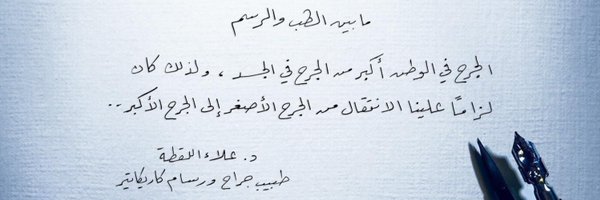 ما بين الطب والرسم
الجرح في الوطن أكبر من الجرح في الجسد ، ولذلك كان
لزامًا علينا الانتقال من الجرح الأصغر إلى الجرح الأكبر..
د. علاء اللقطة
طبيب جراح ورسام كاريكاتير